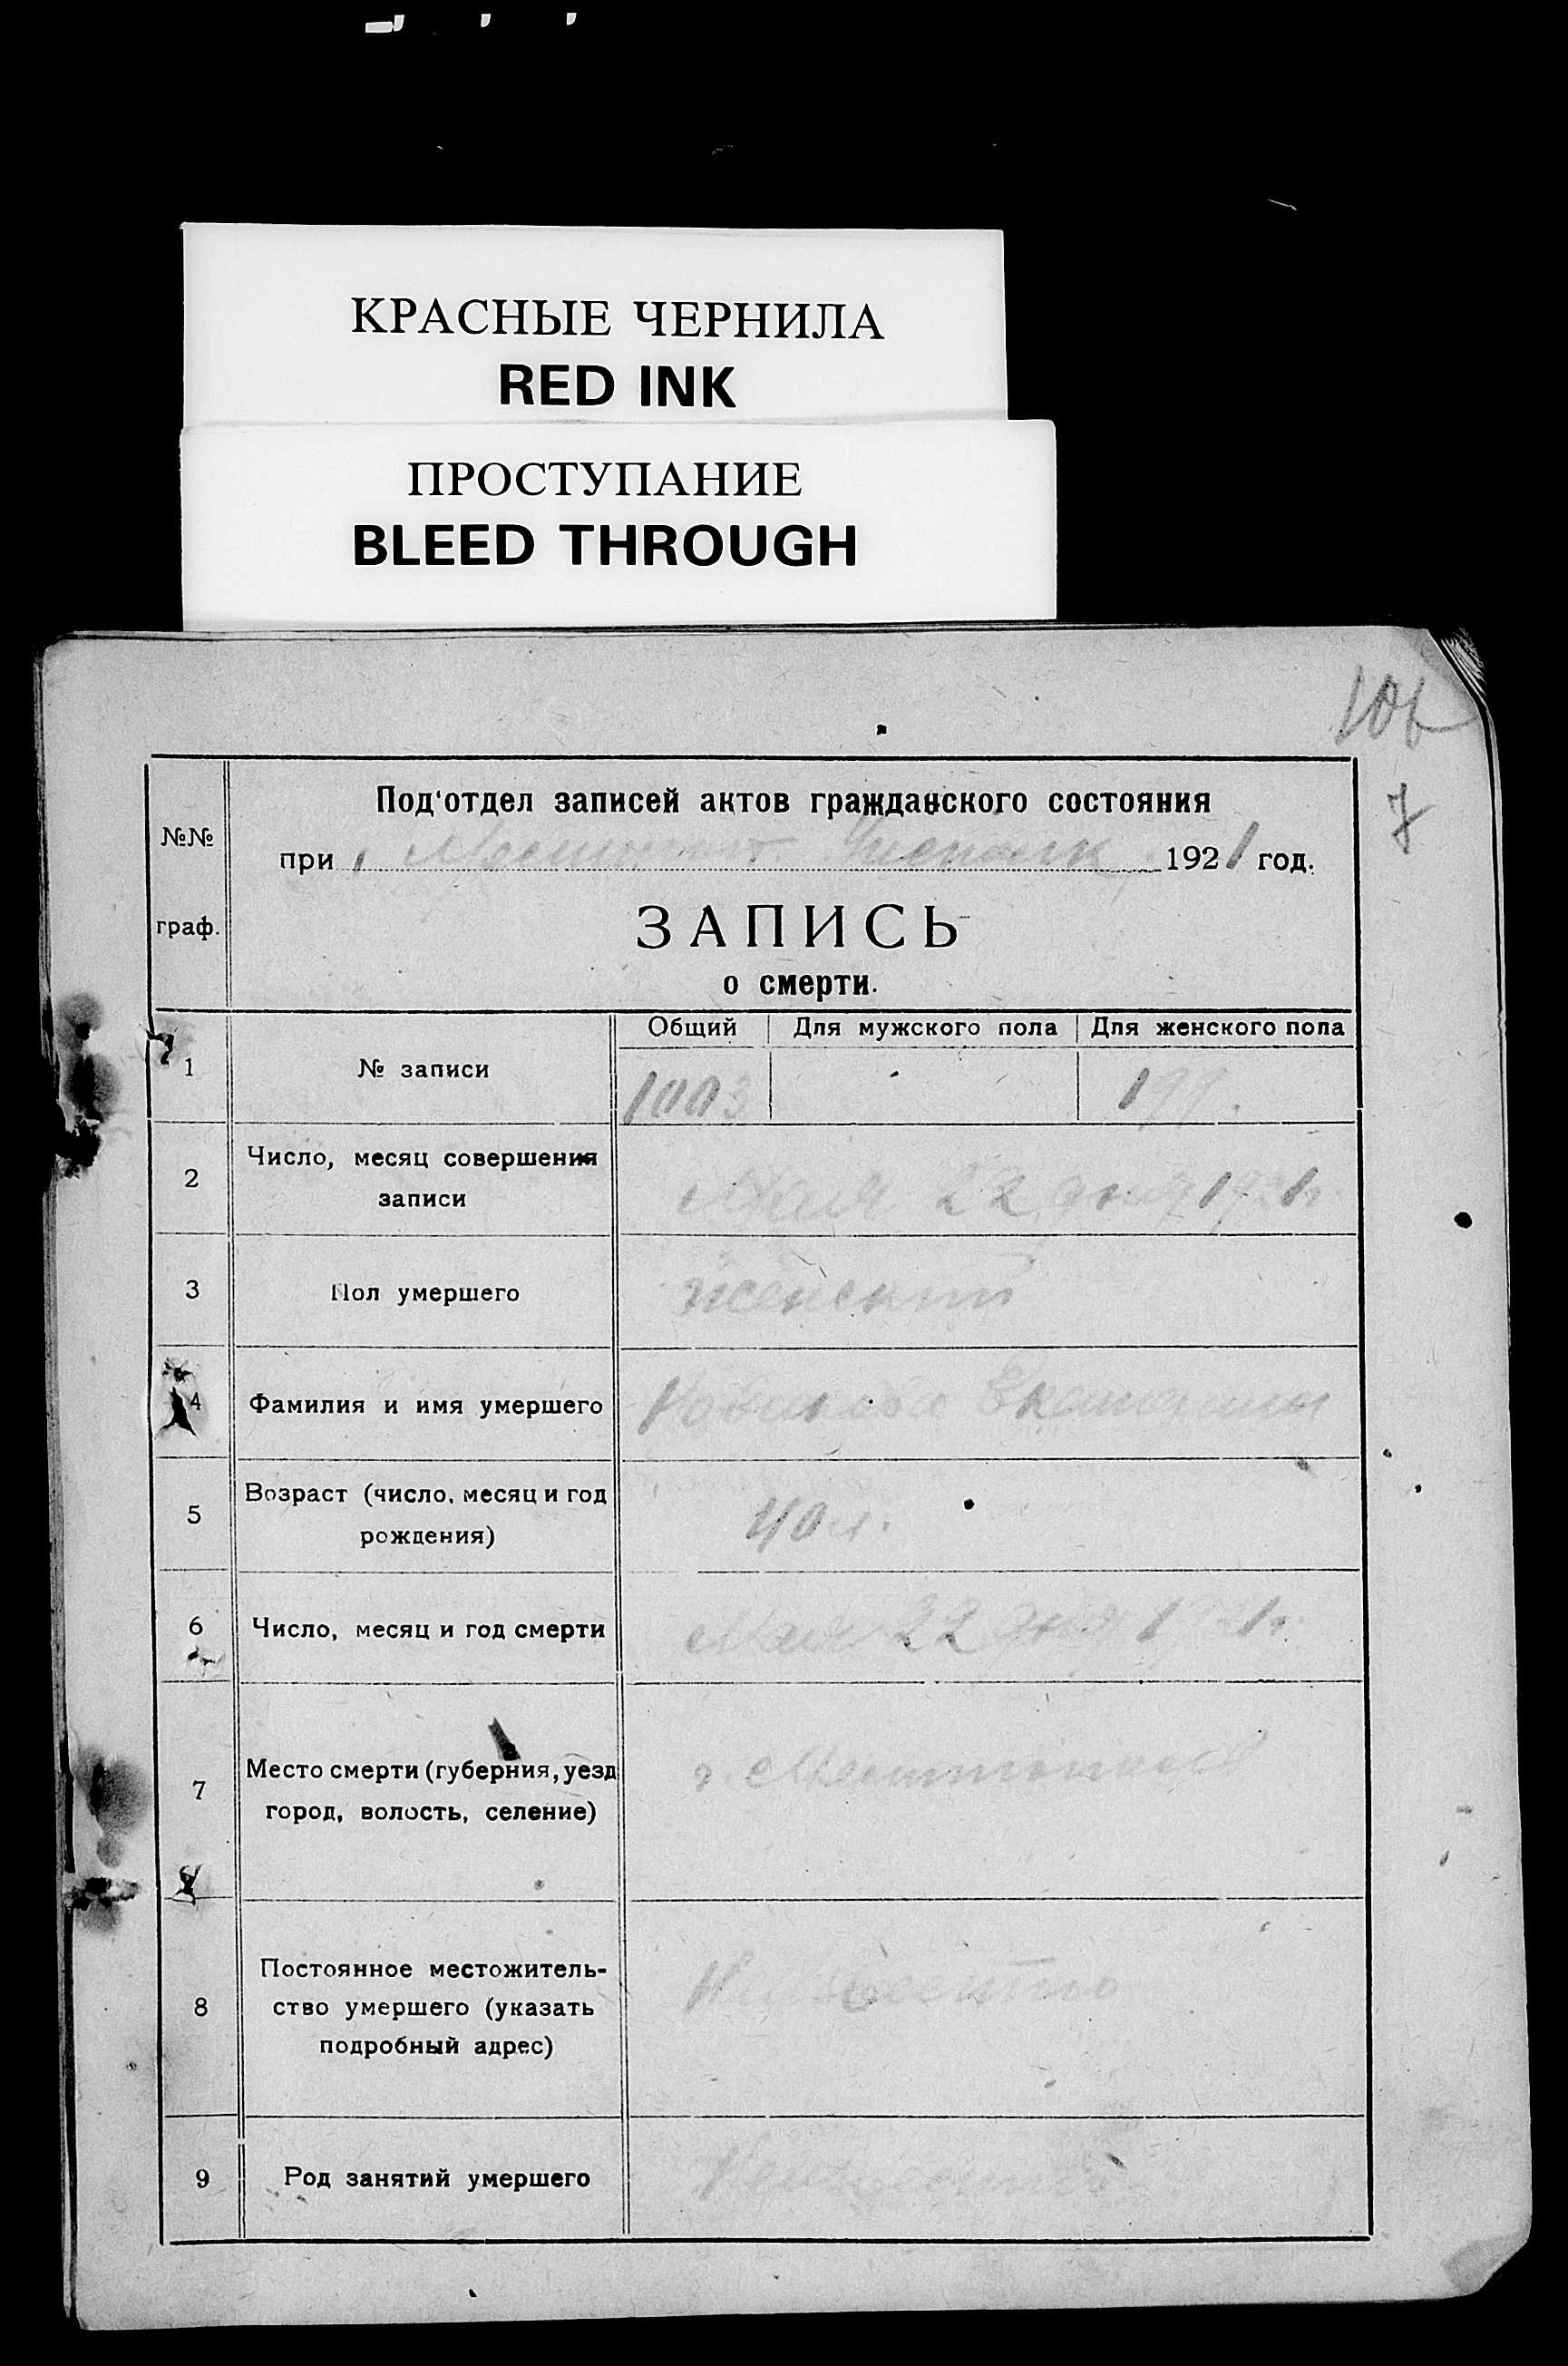 КРАСНЫЕ ЧЕРНИЛА
RED INK
ПРОСТУПАНИЕ
BLEED THROUGH
7
№№
граф.
Под'отдел записей актов гражданского состояния
при 1921 год.
ЗАПИСЬ
о смерти.
Общий Для мужского пола Для женского пола
1 № записи 1003 199.
2 Число, месяц совершения
записи
Мая 22 дня
3 Пол умершего женский
4 Фамилия и имя умершего
5 Возраст (число, месяц и год
рождения)
40 л.
6 Число, месяц и год смерти Мая 22 дня
7 Место смерти (губерния, уезд
город, волость, селение)
г.
8 Постоянное местожитель-
ство умершего (указать
подробный адрес)
9 Род занятий умершего